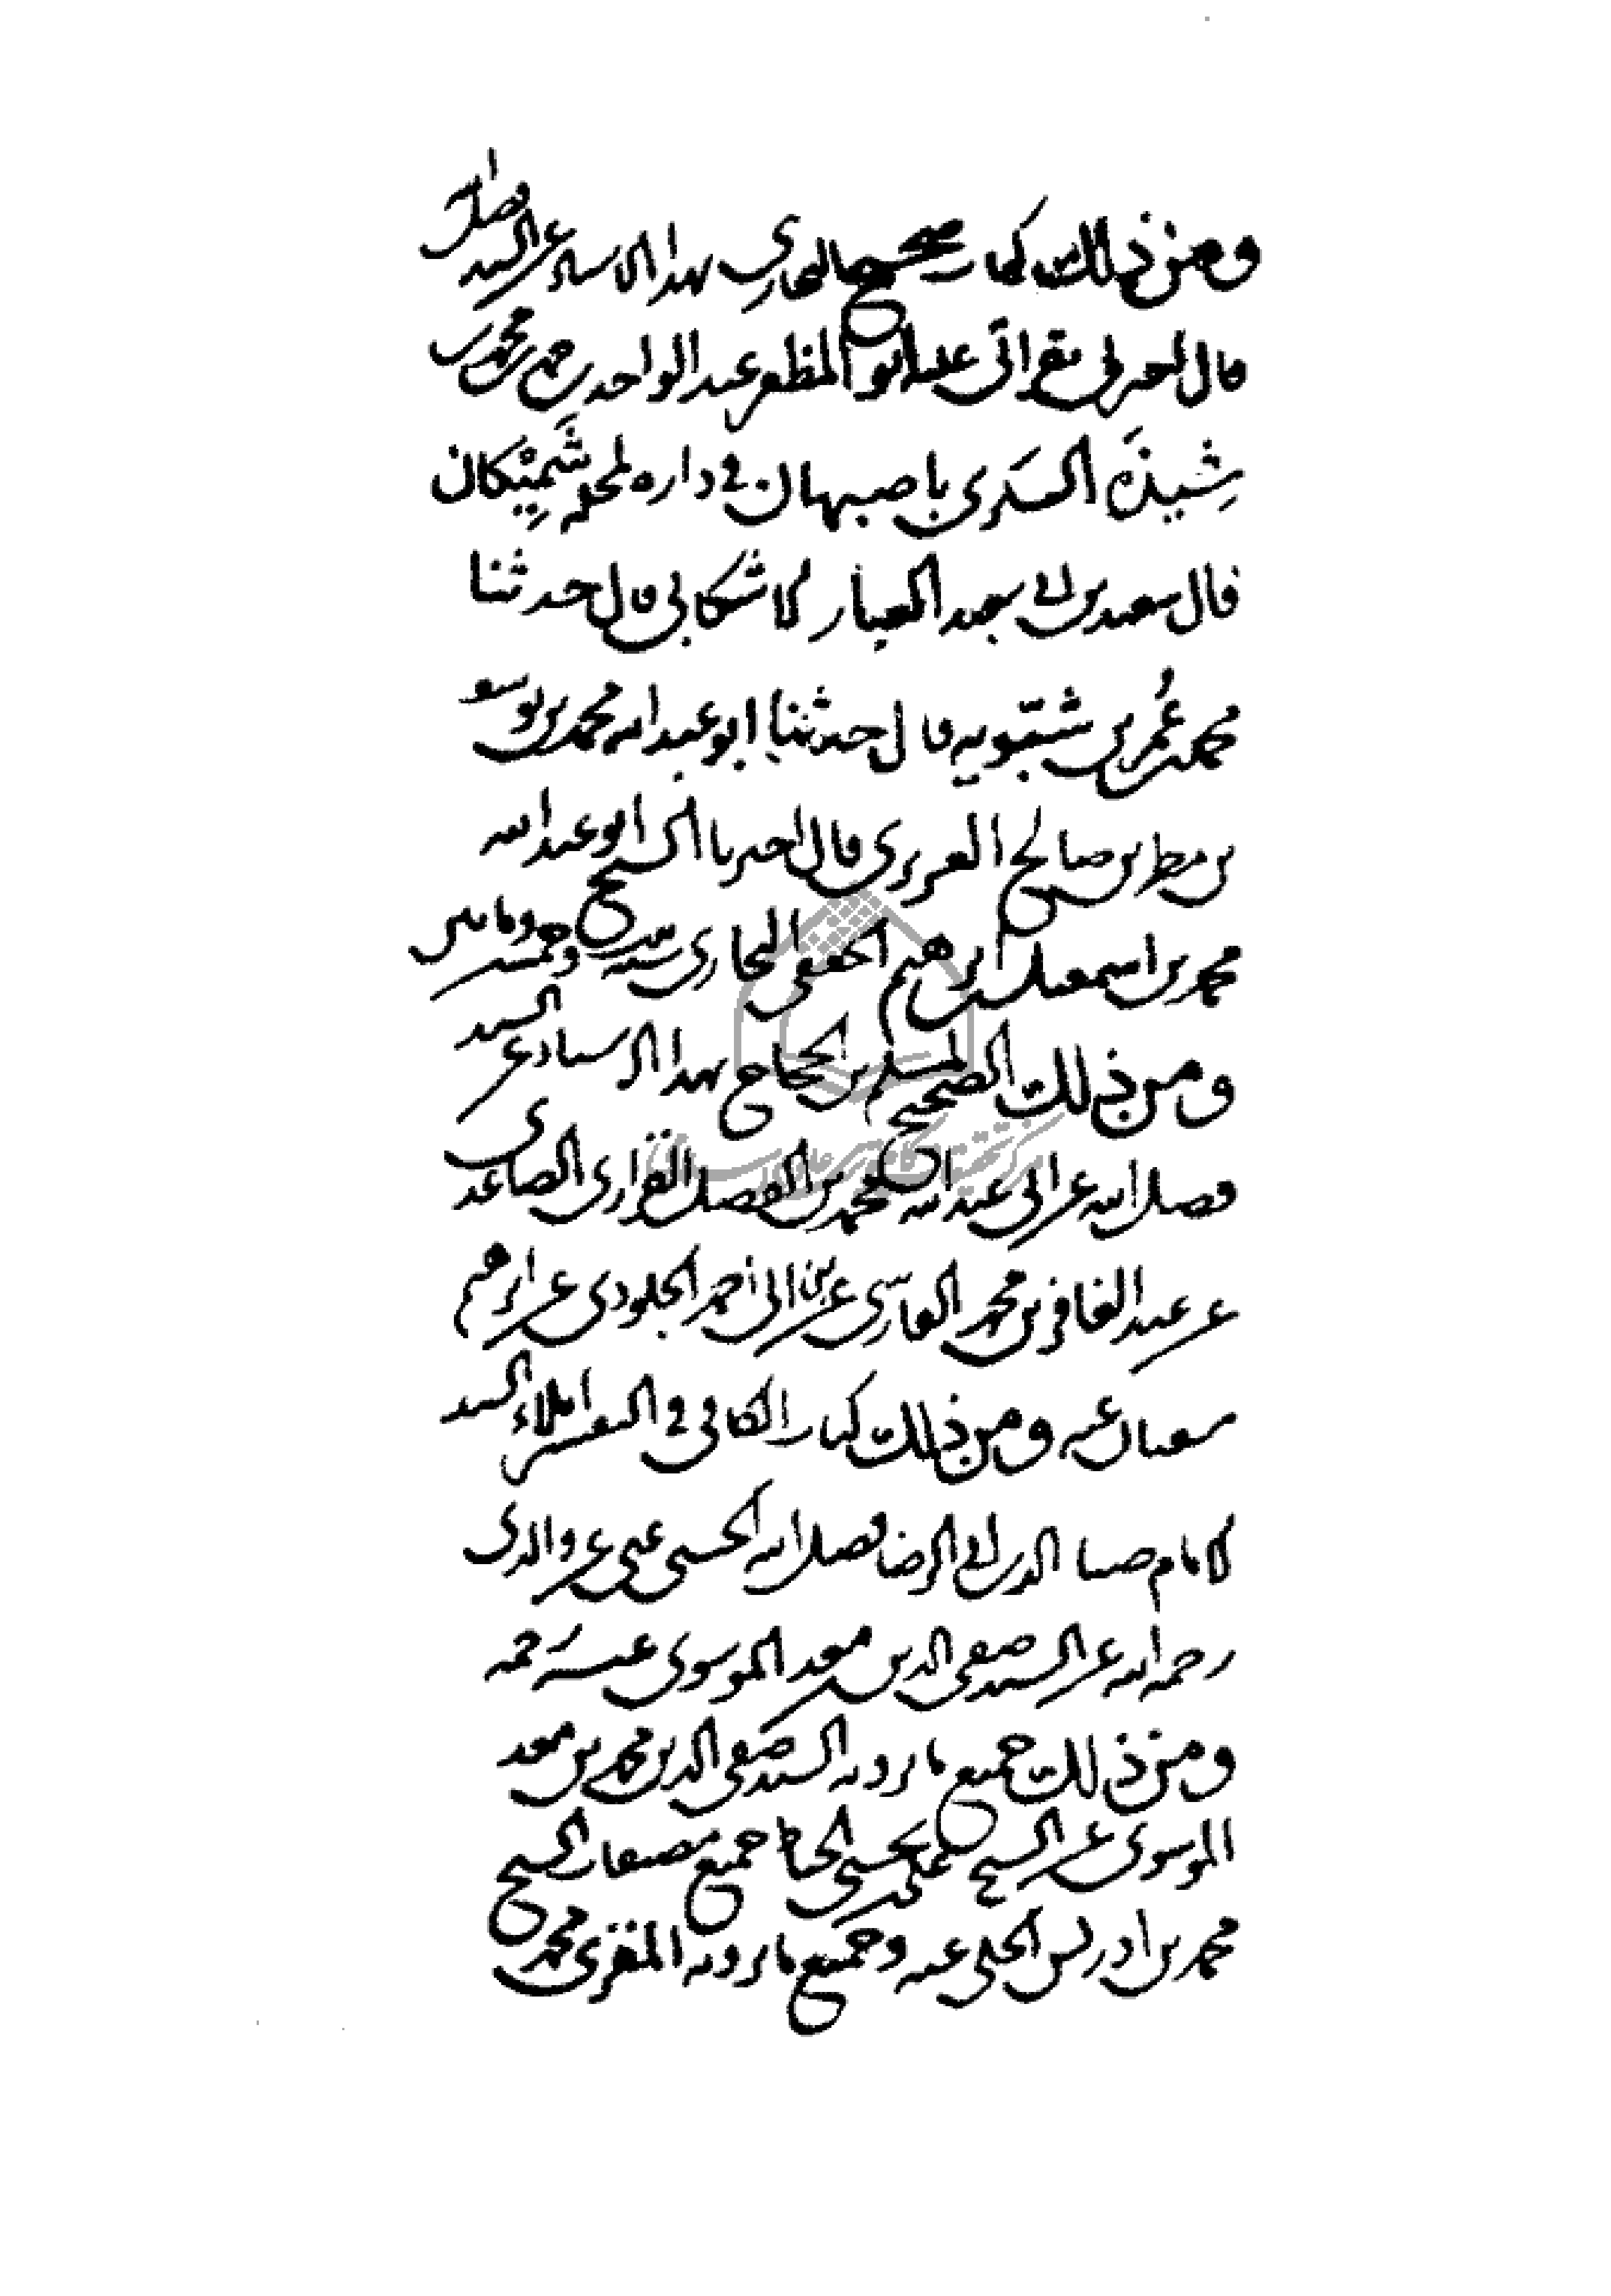 ومن ذلك كتاب صحيح البخاري بهذا الاسناد عن السيد فضل الله
قال اخبرني بقراءتي عليه ابو المظفر عبد الواحد بن حمد بن محمد بن
شِيذَه السكري باصبهان في داره بمحلة شَمِيْكان
قال سعيد بن ابي سعيد العيار الاشكابي قال حدثنا
محمد بن عُمر بن شبّويه قال حدثنا ابو عبد الله محمد بن يوسف
بن مطر بن صالح الفربري قال اخبرنا الشيخ ابو عبد الله
محمد بن اسمعيل بن ابرهيم الجعفي البخاري سنة وخمسين ومايتين
ومن ذلك الصحيح لمسلم بن الحجاج بهذا الاسناد عن السيد
فضل الله عن ابي عبد الله محمد بن الفضل الفراوي الصاعدي
عن عبد الغافر بن محمد الفارسي عن ابي احمد الجلودي عن ابرهيم
سفيان عنه ومن ذلك كتاب الكافي في التفسير املاء السيد
الامام ضيا الدين ابي الرضا فضل الله الحسني عني عن والدي
رحمه الله عن السيد صفي الدين معد الموسوي عنه رحمه
ومن ذلك جميع ما يرويه السيد صفي الدين محمد بن معد
الموسوي عن الشيخ علي بن يحيى الخياط جميع مصنفات الشيخ
محمد بن ادريس الحلي عنه وجميع ما يرويه المقرى محمد